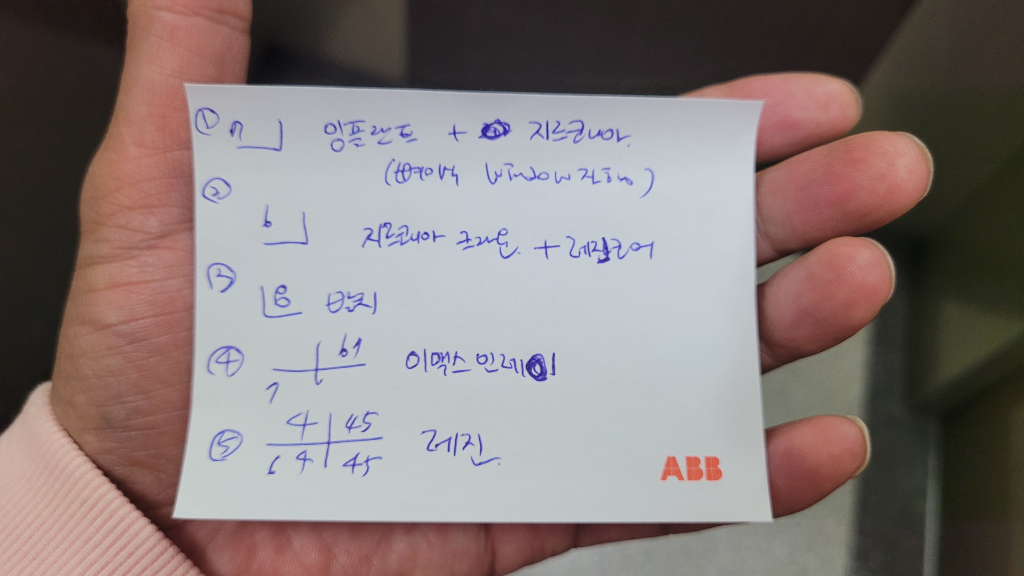 ① 7 임플란트 + 지르코니아.
(뼈이식 window 진행)
② 6 지르코니아 크라운. + 레진코어
③ 8 발치
④ 67 7 이맥스 인레이
⑤ 4 45
64 45 레진.
ABB